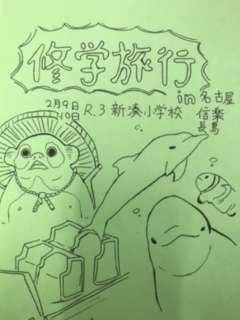 修学旅行
in 名古屋
信楽
長島
2月9日
10日
R.3 新湊小学校